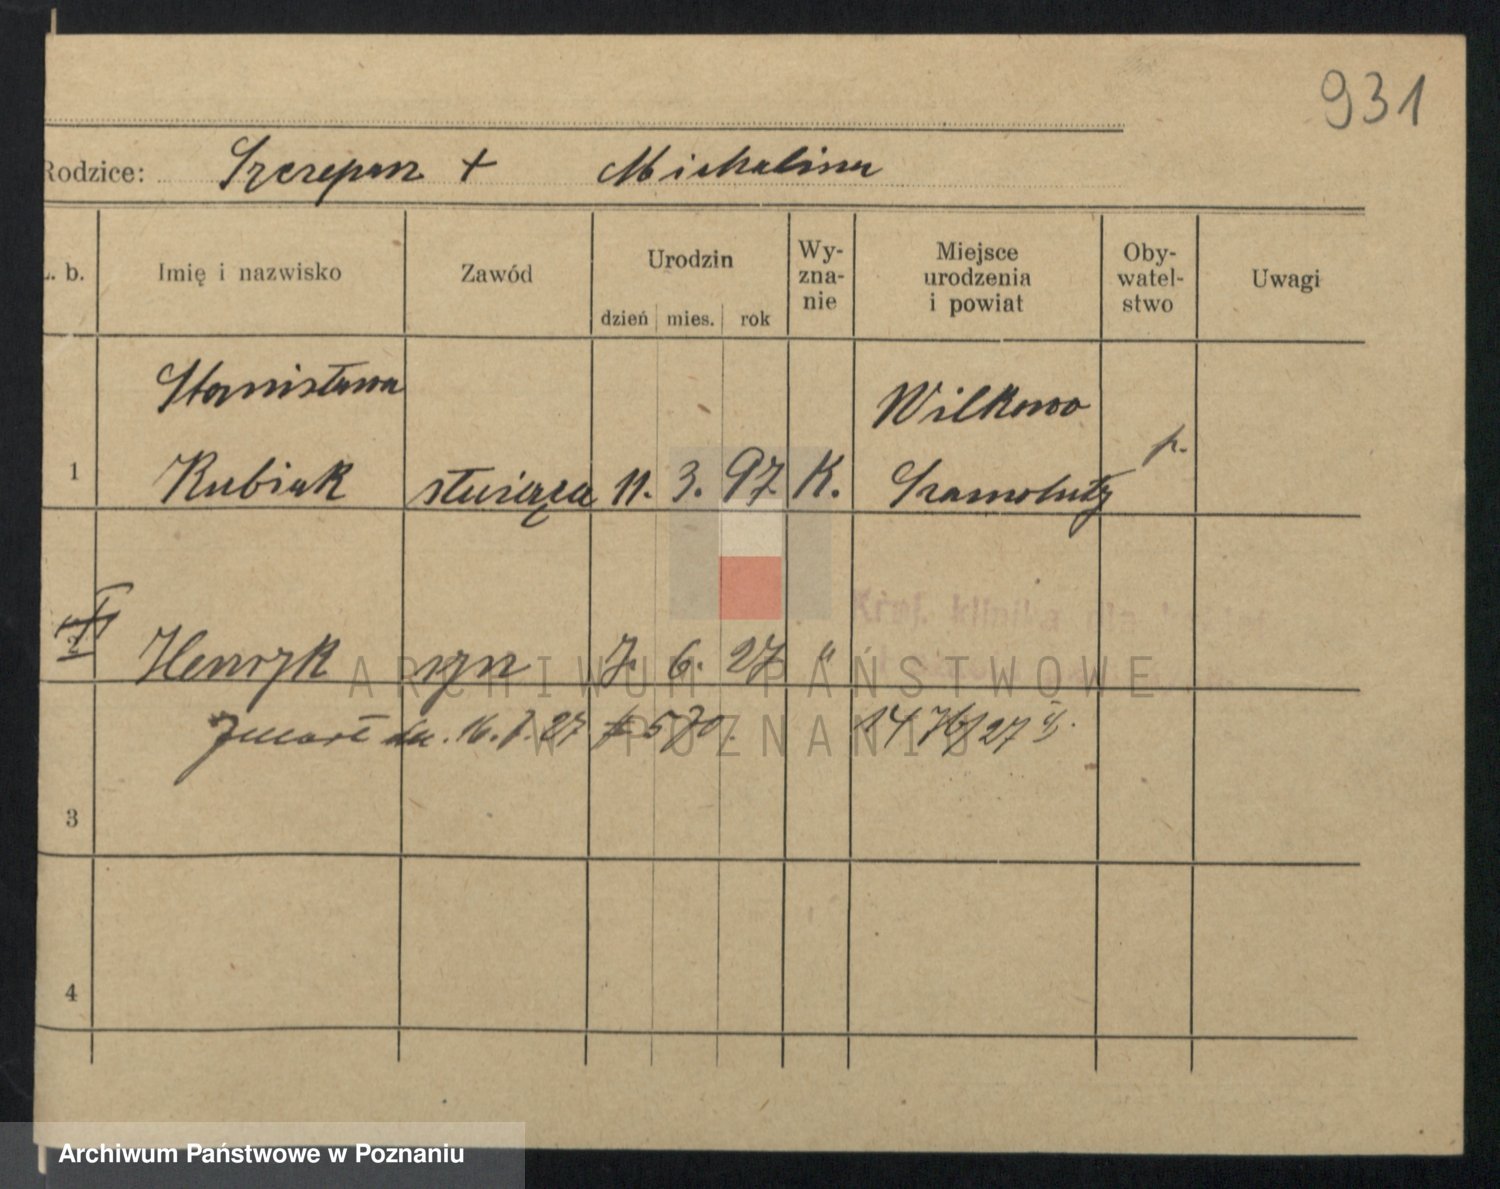 931
Rodzice: Szczepan + Michalina
L. b. Imię i nazwisko Zawód Urodzin dzień mies. rok Wy-zna-nie Miejsce urodzenia i powiat Oby-watel-stwo Uwagi
Stanisława Wilkowo
1 Kubiak służąca 11. 3. 97. K. Szamotuły p.
Henryk syn 7. 6. 27 "
Zmarł dn. 16.7.27 570.
3
4
ARCHIWUM PAŃSTWOWE
W POZNANIU
Archiwum Państwowe w Poznaniu